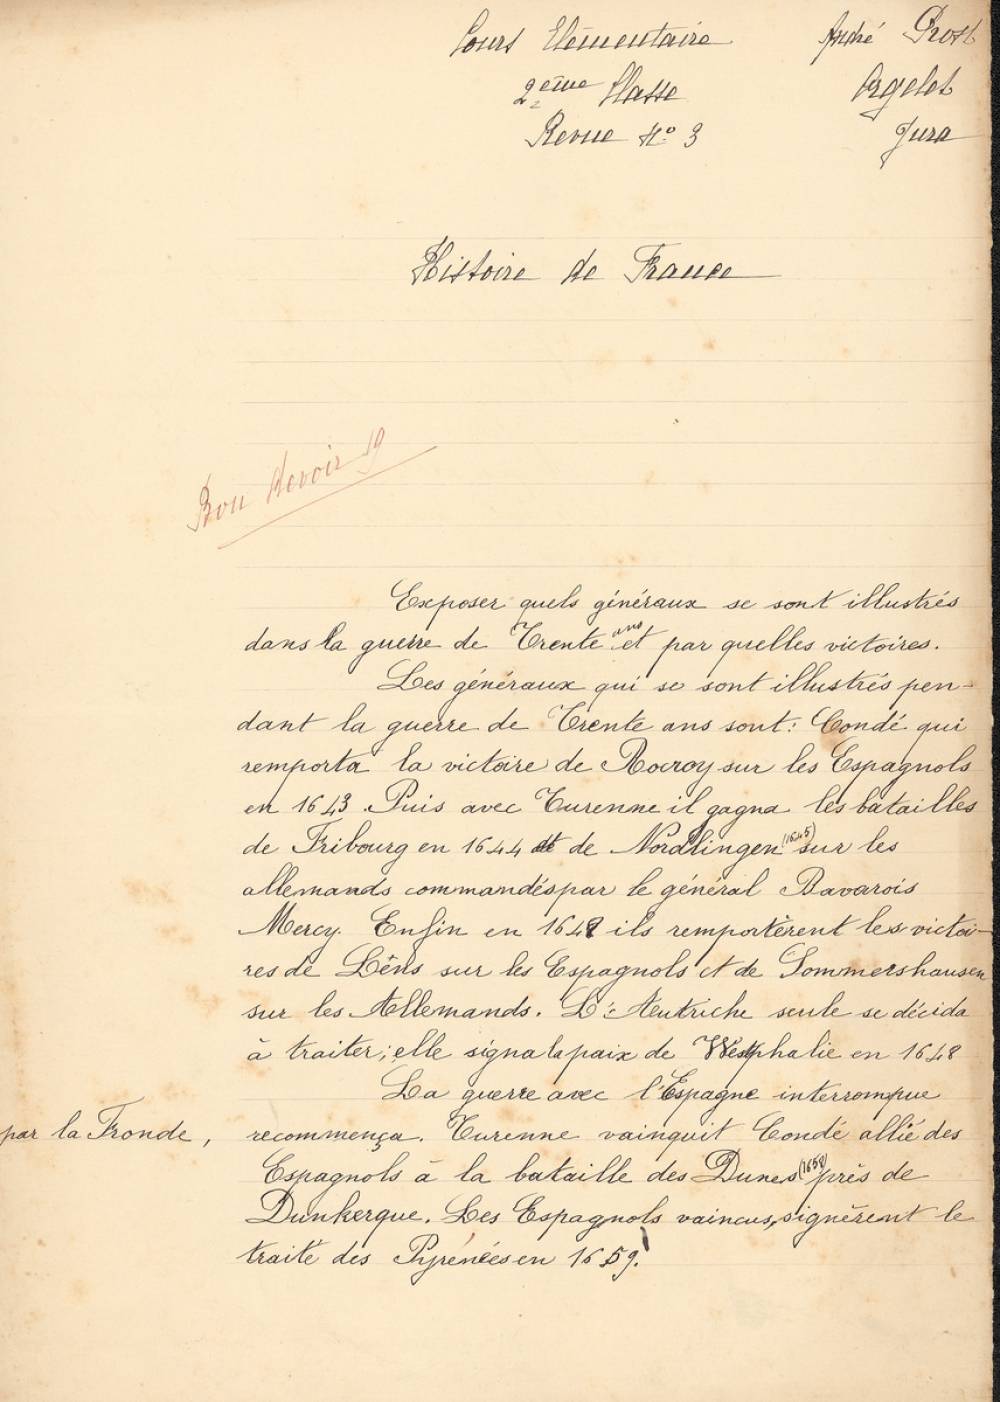 Cours Elémentaire
André Prost
2ème Classe
Orgelet
Revue No 3
Jura
Histoire de France
Bon devoir 19
Exposer quels généraux se sont illustrés
dans la guerre de Trente ans et par quelles victoires.
Les généraux qui se sont illustrés pen-
dant la guerre de Trente ans sont: Condé qui
remporta la victoire de Rocroy sur les Espagnols
en 1643. Puis avec Turenne il gagna les batailles
de Fribourg en 1644 et de Nordlingen (1645) sur les
allemands commandés par le général Bavarois
Mercy. Enfin en 1648 ils remportèrent les victoi-
res de Lens sur les Espagnols et de Sommershausen
sur les Allemands. L'Autriche seule se décida
à traiter; elle signa la paix de Westphalie en 1648
La guerre avec l'Espagne interrompue
par la Fronde, recommença. Turenne vainquit Condé allié des
Espagnols à la bataille des Dunes (1658) près de
Dunkerque. Les Espagnols vaincus, signèrent le
traité des Pyrénées en 1659.